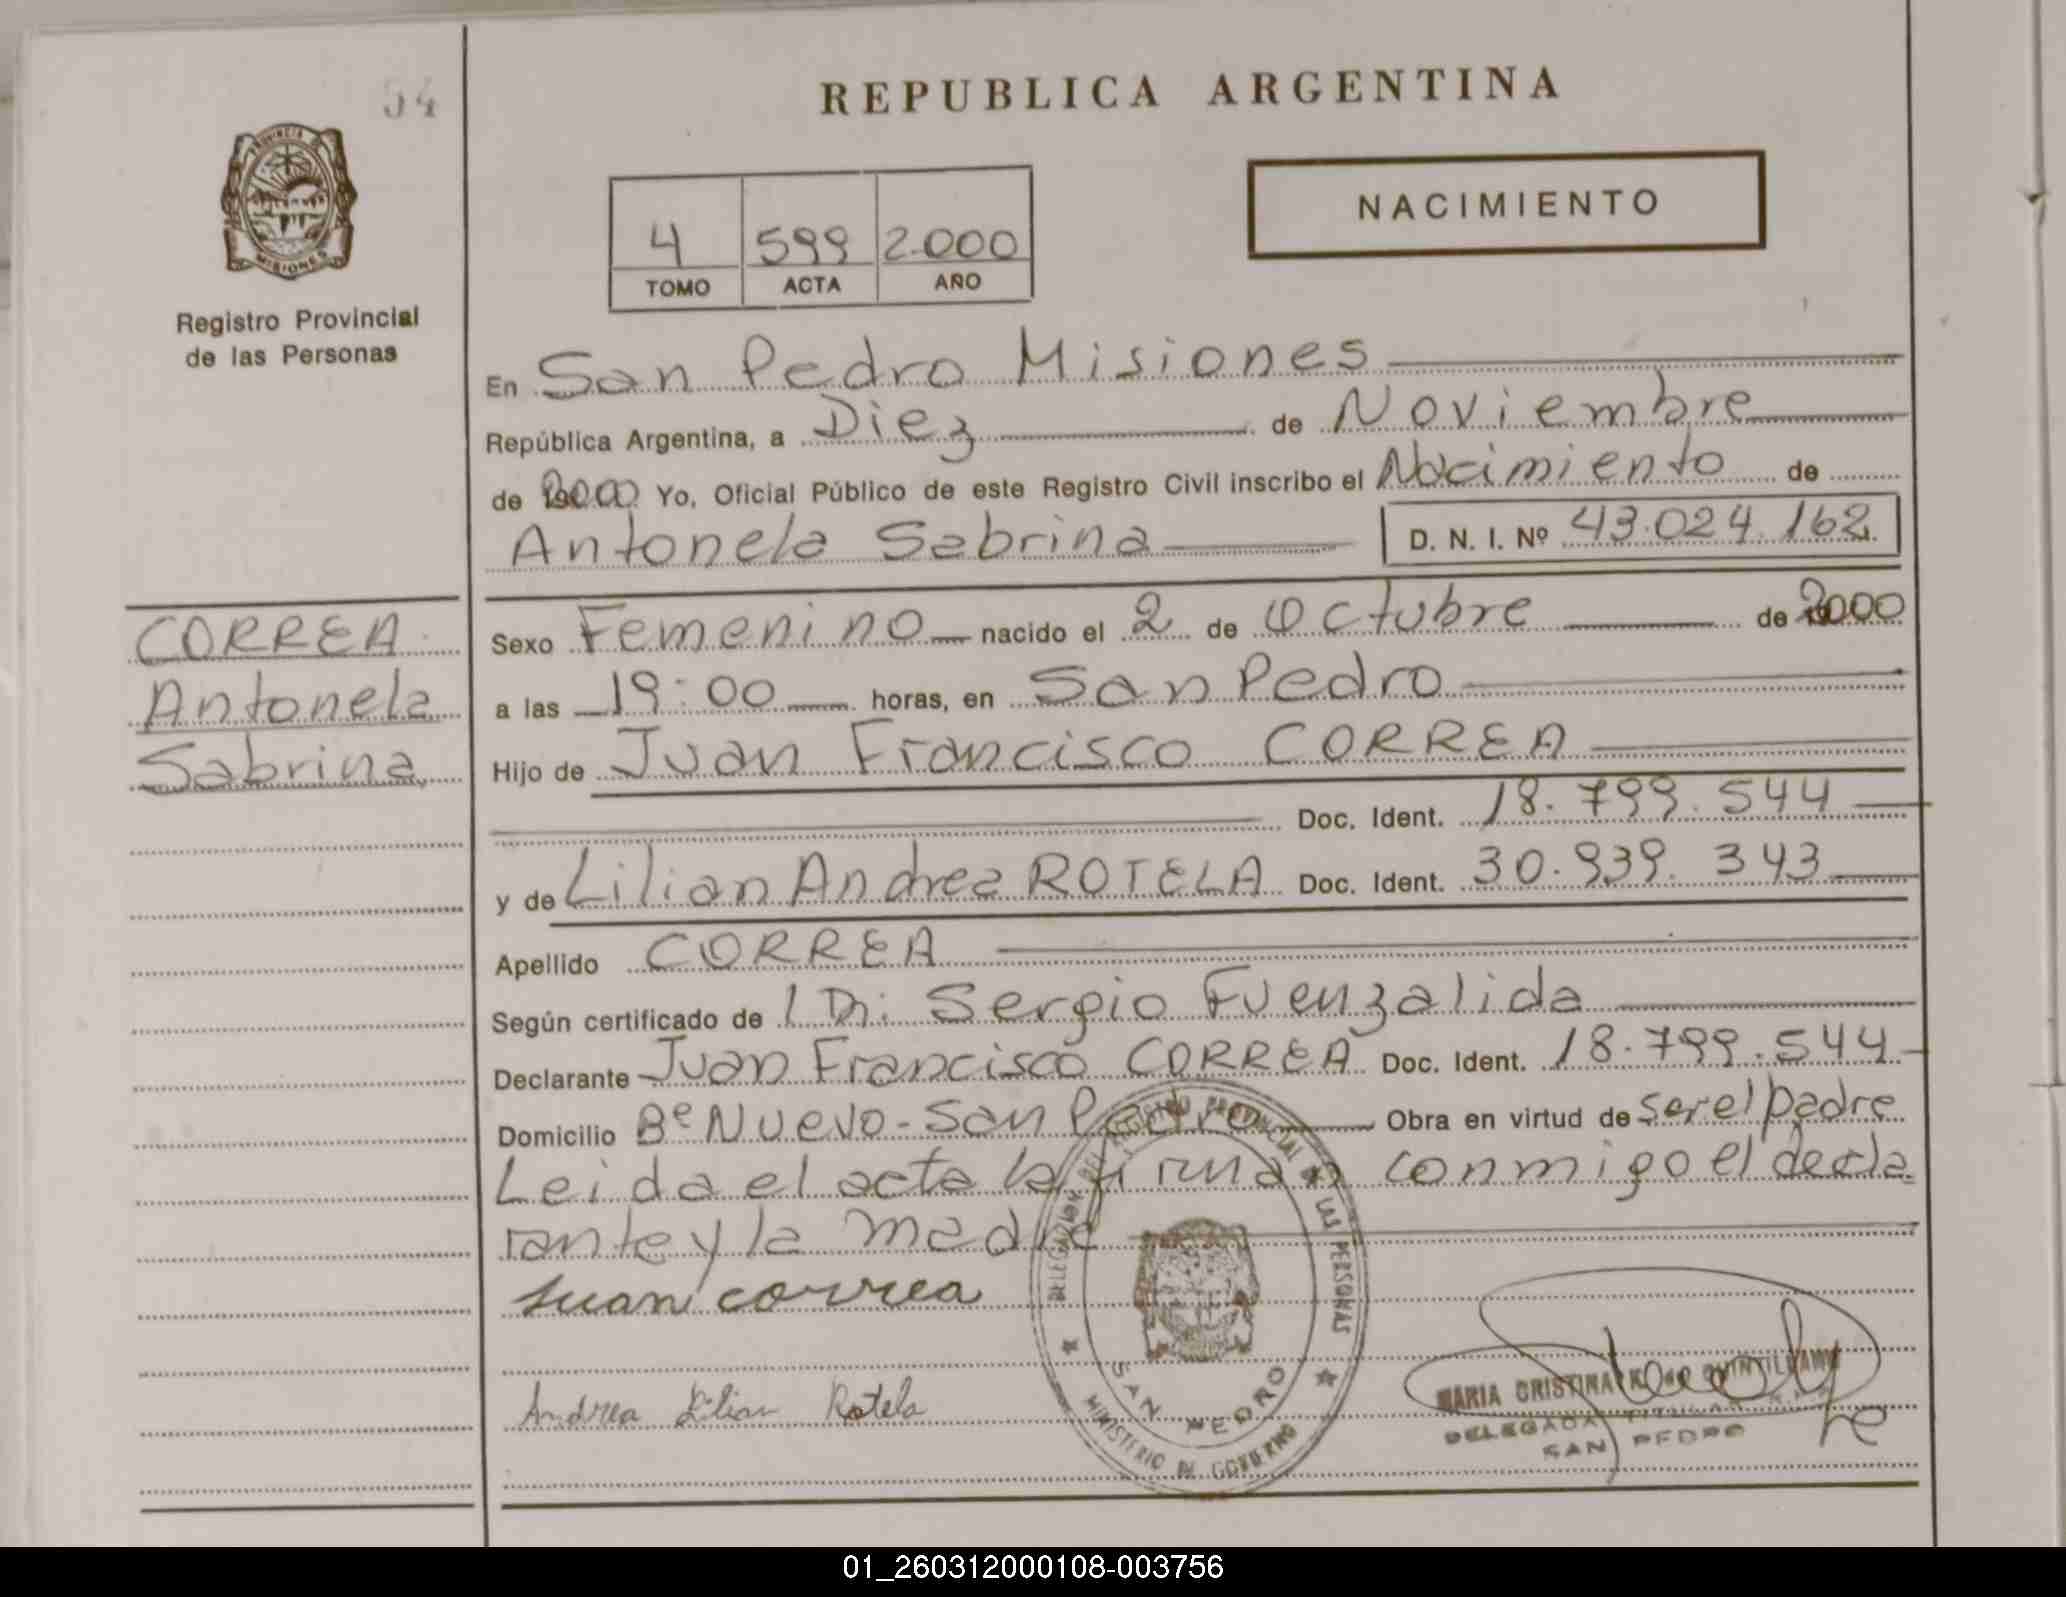 54
REPUBLICA ARGENTINA
PROVINCIA DE
MISIONES
Registro Provincial
de las Personas
NACIMIENTO
4 599 2.000
TOMO ACTA AÑO
En San Pedro Misiones
República Argentina, a Diez de Noviembre
de 2000 Yo, Oficial Público de este Registro Civil inscribo el Nacimiento de
Antonela Sabrina D. N. I. Nº 43.024.162
CORREA
Antonela
Sabrina
Sexo Femenino nacido el 2 de Octubre de 2000
a las 19:00 horas, en San Pedro
Hijo de Juan Francisco CORREA
Doc. Ident. 18.799.544
y de Lilian Andrea ROTELA Doc. Ident. 30.939.343
Apellido CORREA
Según certificado de l Dr: Sergio Fuenzalida
Declarante Juan Francisco CORREA Doc. Ident. 18.799.544
Domicilio Bº Nuevo - San Pedro Obra en virtud de ser el padre
Leida el acta la firman conmigo el decla
rante y la madre
Juan correa
Andrea Lilian Rotela
DELEGACION DEL REGISTRO PROVINCIAL DE LAS PERSONAS
SAN PEDRO
MINISTERIO DE GOBIERNO
MARIA CRISTINA K. de QUINTILIANI
DELEGADA TITULAR
SAN PEDRO
01_260312000108-003756